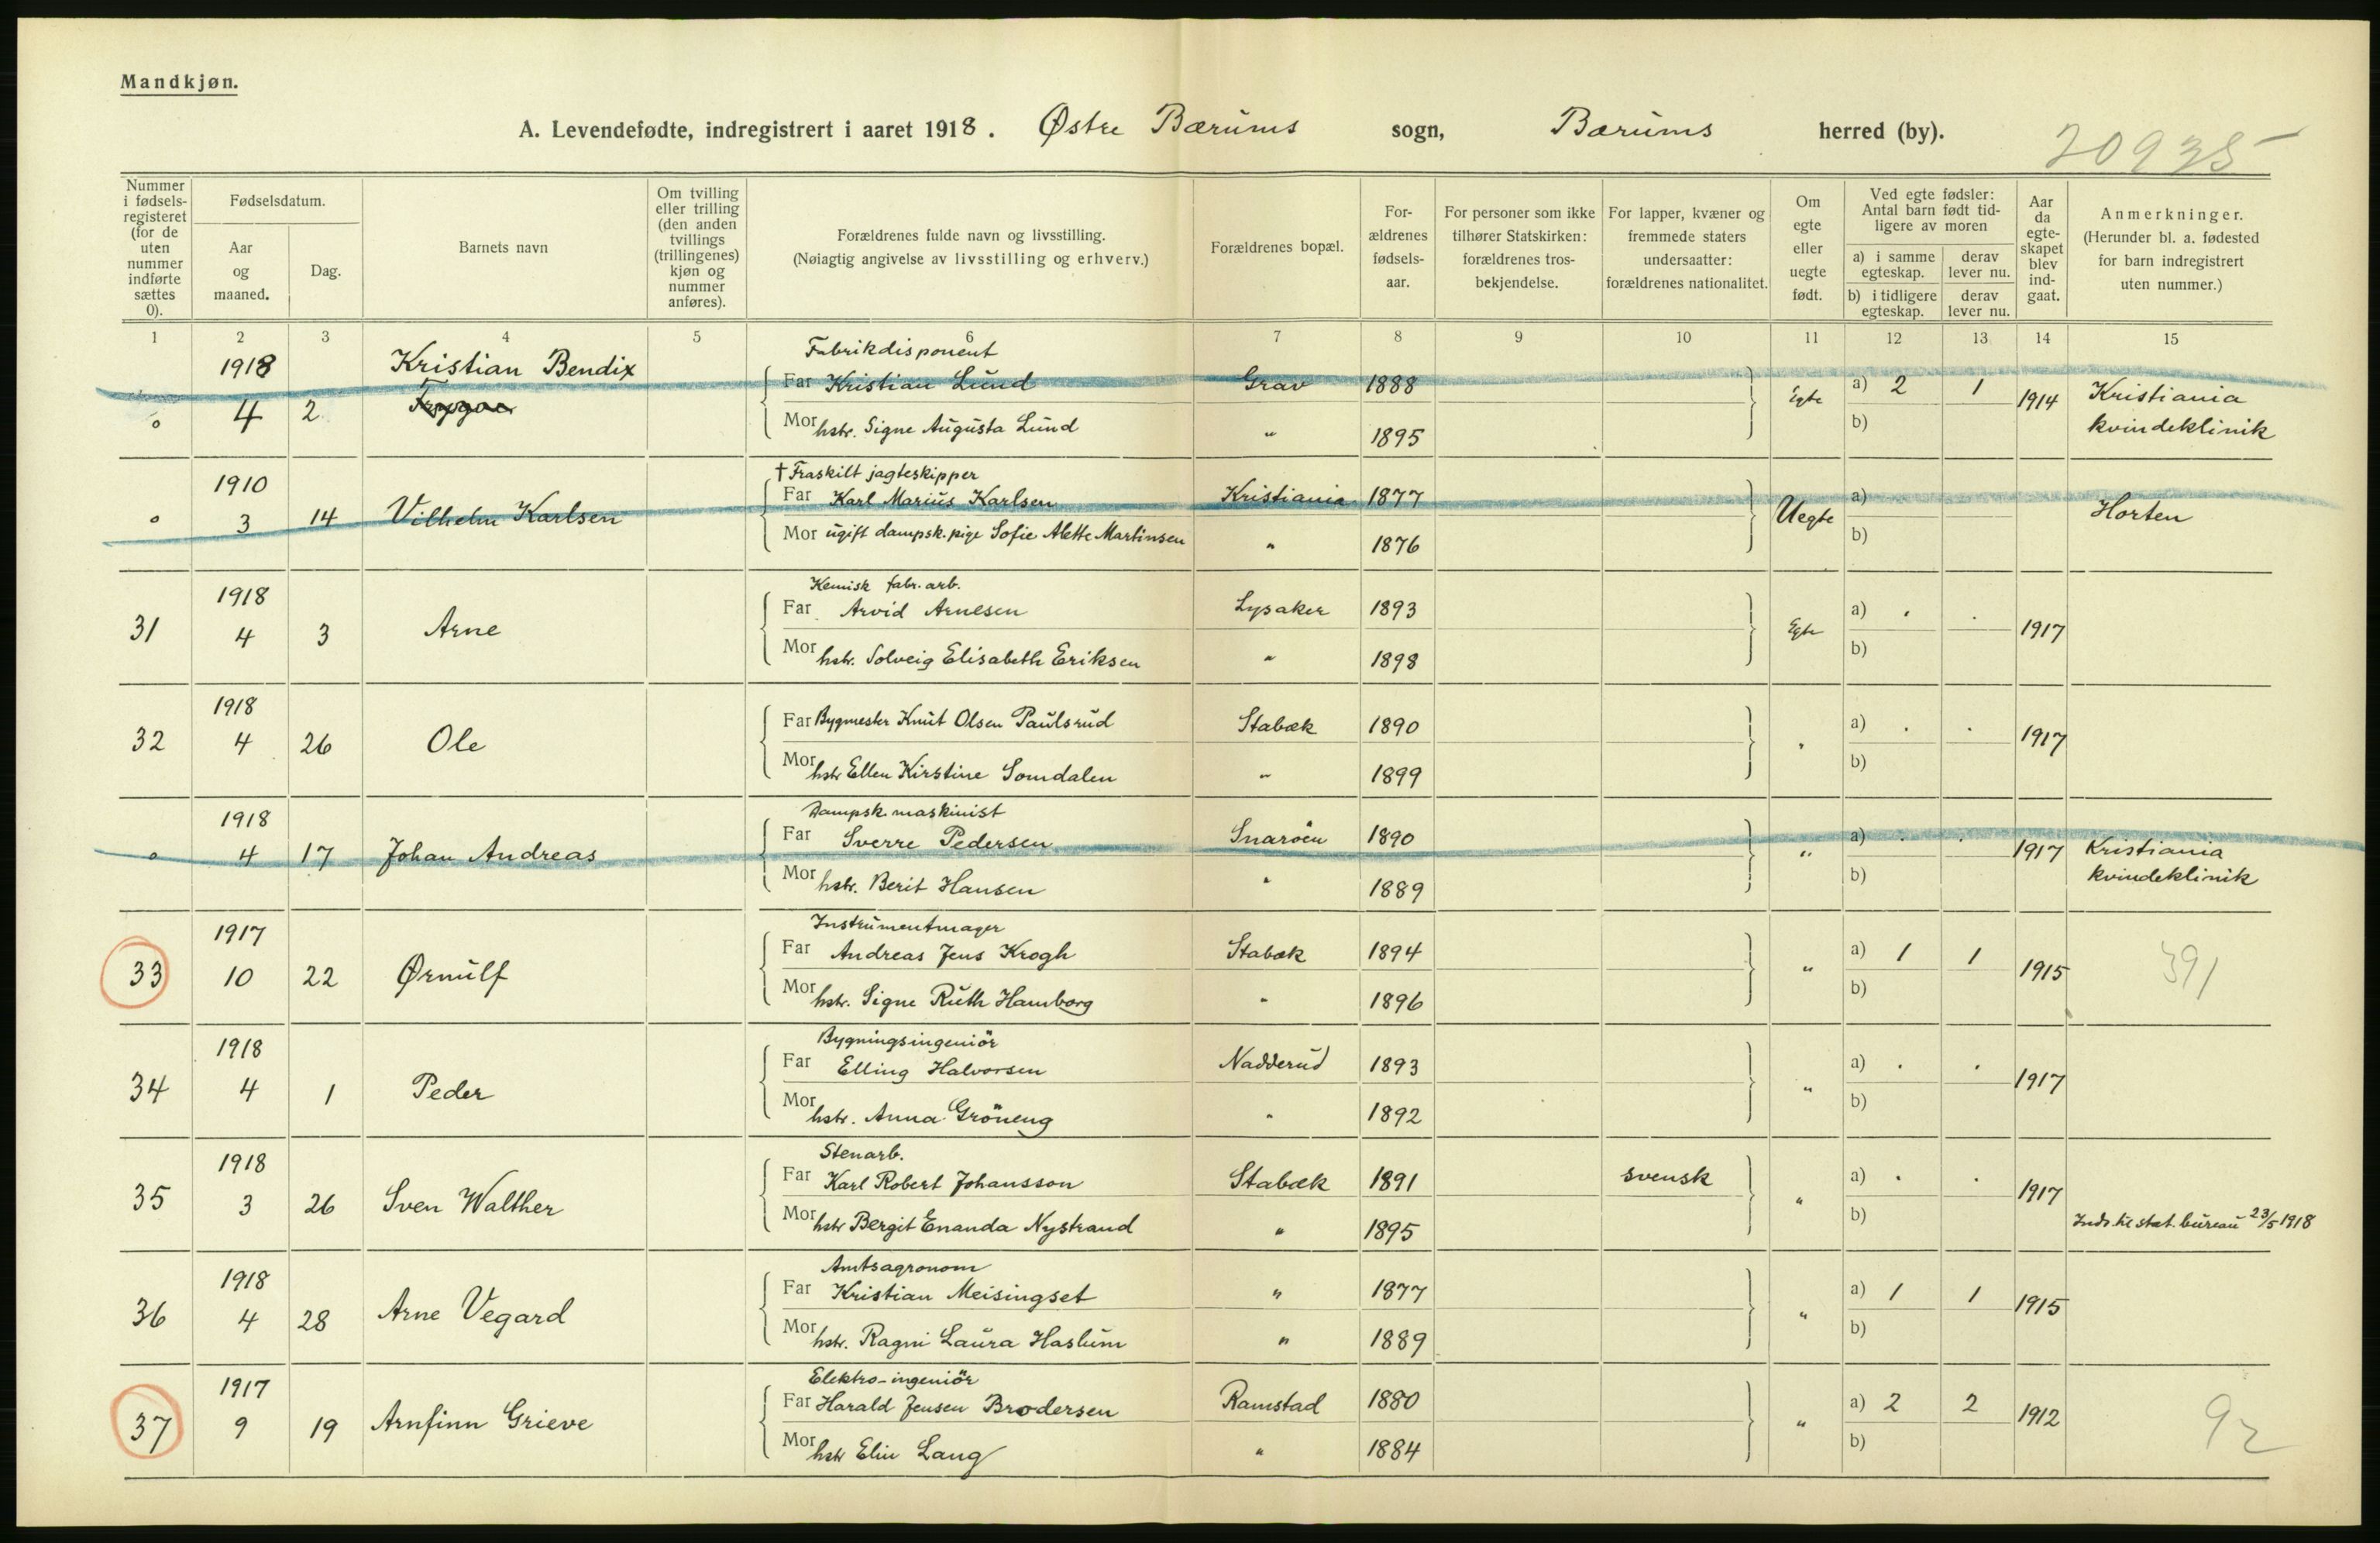 Mandkjøn.
A. Levendefødte, indregistrert i aaret 1918. Østre Bærums sogn, Bærums herred (by).
20935
Nummer i fødselsregisteret (for de uten nummer indførte sættes 0).
Fødselsdatum.
Aar og maaned.
Dag.
Barnets navn
Om tvilling eller trilling (den anden tvillings (trillingenes) kjøn og nummer anføres).
Forældrenes fulde navn og livsstilling.
(Nøiagtig angivelse av livsstilling og erhverv.)
Forældrenes bopæl.
Forældrenes fødselsaar.
For personer som ikke tilhører Statskirken: forældrenes trosbekjendelse.
For lapper, kvæner og fremmede staters undersaatter: forældrenes nationalitet.
Om egte eller uegte født.
Ved egte fødsler: Antal barn født tidligere av moren
a) i samme egteskap. derav lever nu.
b) i tidligere egteskap. derav lever nu.
Aar da egteskapet blev indgaat.
Anmerkninger.
(Herunder bl. a. fødested for barn indregistrert uten nummer.)
1 2 3 4 5 6 7 8 9 10 11 12 13 14 15
1918 Kristian Bendix Fabrikdisponent
Far Kristian Lund Grav 1888 a) 2 1 Kristiania
0 4 2 Egte 1914
Mor hstr. Signe Augusta Lund " 1895 b) kvindeklinik
1910 † Fraskilt jagteskipper
Far Karl Marius Karlsen Kristiania 1877 a)
0 3 14 Vilhelm Karlsen Uegte Horten
Mor ugift dampsk. pige Sofie Alette Martinsen " 1876 b)
1918 Kemisk fabr. arb.
Far Arvid Arnesen Lysaker 1893 a) . .
31 4 3 Arne Egte 1917
Mor hstr. Solveig Elisabeth Eriksen " 1898 b)
1918 Far Bygmester Knut Olsen Paulsrud Stabæk 1890 a) . .
32 4 26 Ole " 1917
Mor hstr Ellen Kirstine Somdalen " 1899 b)
1918 Dampsk. maskinist
Far Sverre Pedersen Snaröen 1890 a) . .
0 4 17 Johan Andreas " 1917 Kristiania
Mor hstr. Berit Hansen " 1889 b) kvindeklinik
1917 Instrumentmager
Far Andreas Jens Krogh Stabæk 1894 a) 1 1
33 10 22 Ørnulf " 1915 391
Mor hstr. Signe Ruth Hamborg " 1896 b)
1918 Bygningsingeniör
Far Elling Halvorsen Nadderud 1893 a) . .
34 4 1 Peder " 1917
Mor hstr. Anna Gröneng " 1892 b)
1918 Stenarb.
Far Karl Robert Johansson Stabæk 1891 svensk a) . .
35 3 26 Sven Walther " 1917
Mor hstr Bergit Enanda Nystrand " 1895 b) Inds. til stat. bureau 23/5 1918
1918 Amtsagronom
Far Kristian Meisingset " 1877 a) 1 1
36 4 28 Arne Vegard " 1915
Mor hstr. Ragni Laura Haslum " 1889 b)
1917 Elektro-ingeniör
Far Harald Jensen Brodersen Ramstad 1880 a) 2 2
37 9 19 Arnfinn Grieve " 1912 92
Mor hstr Elin Lang " 1884 b)